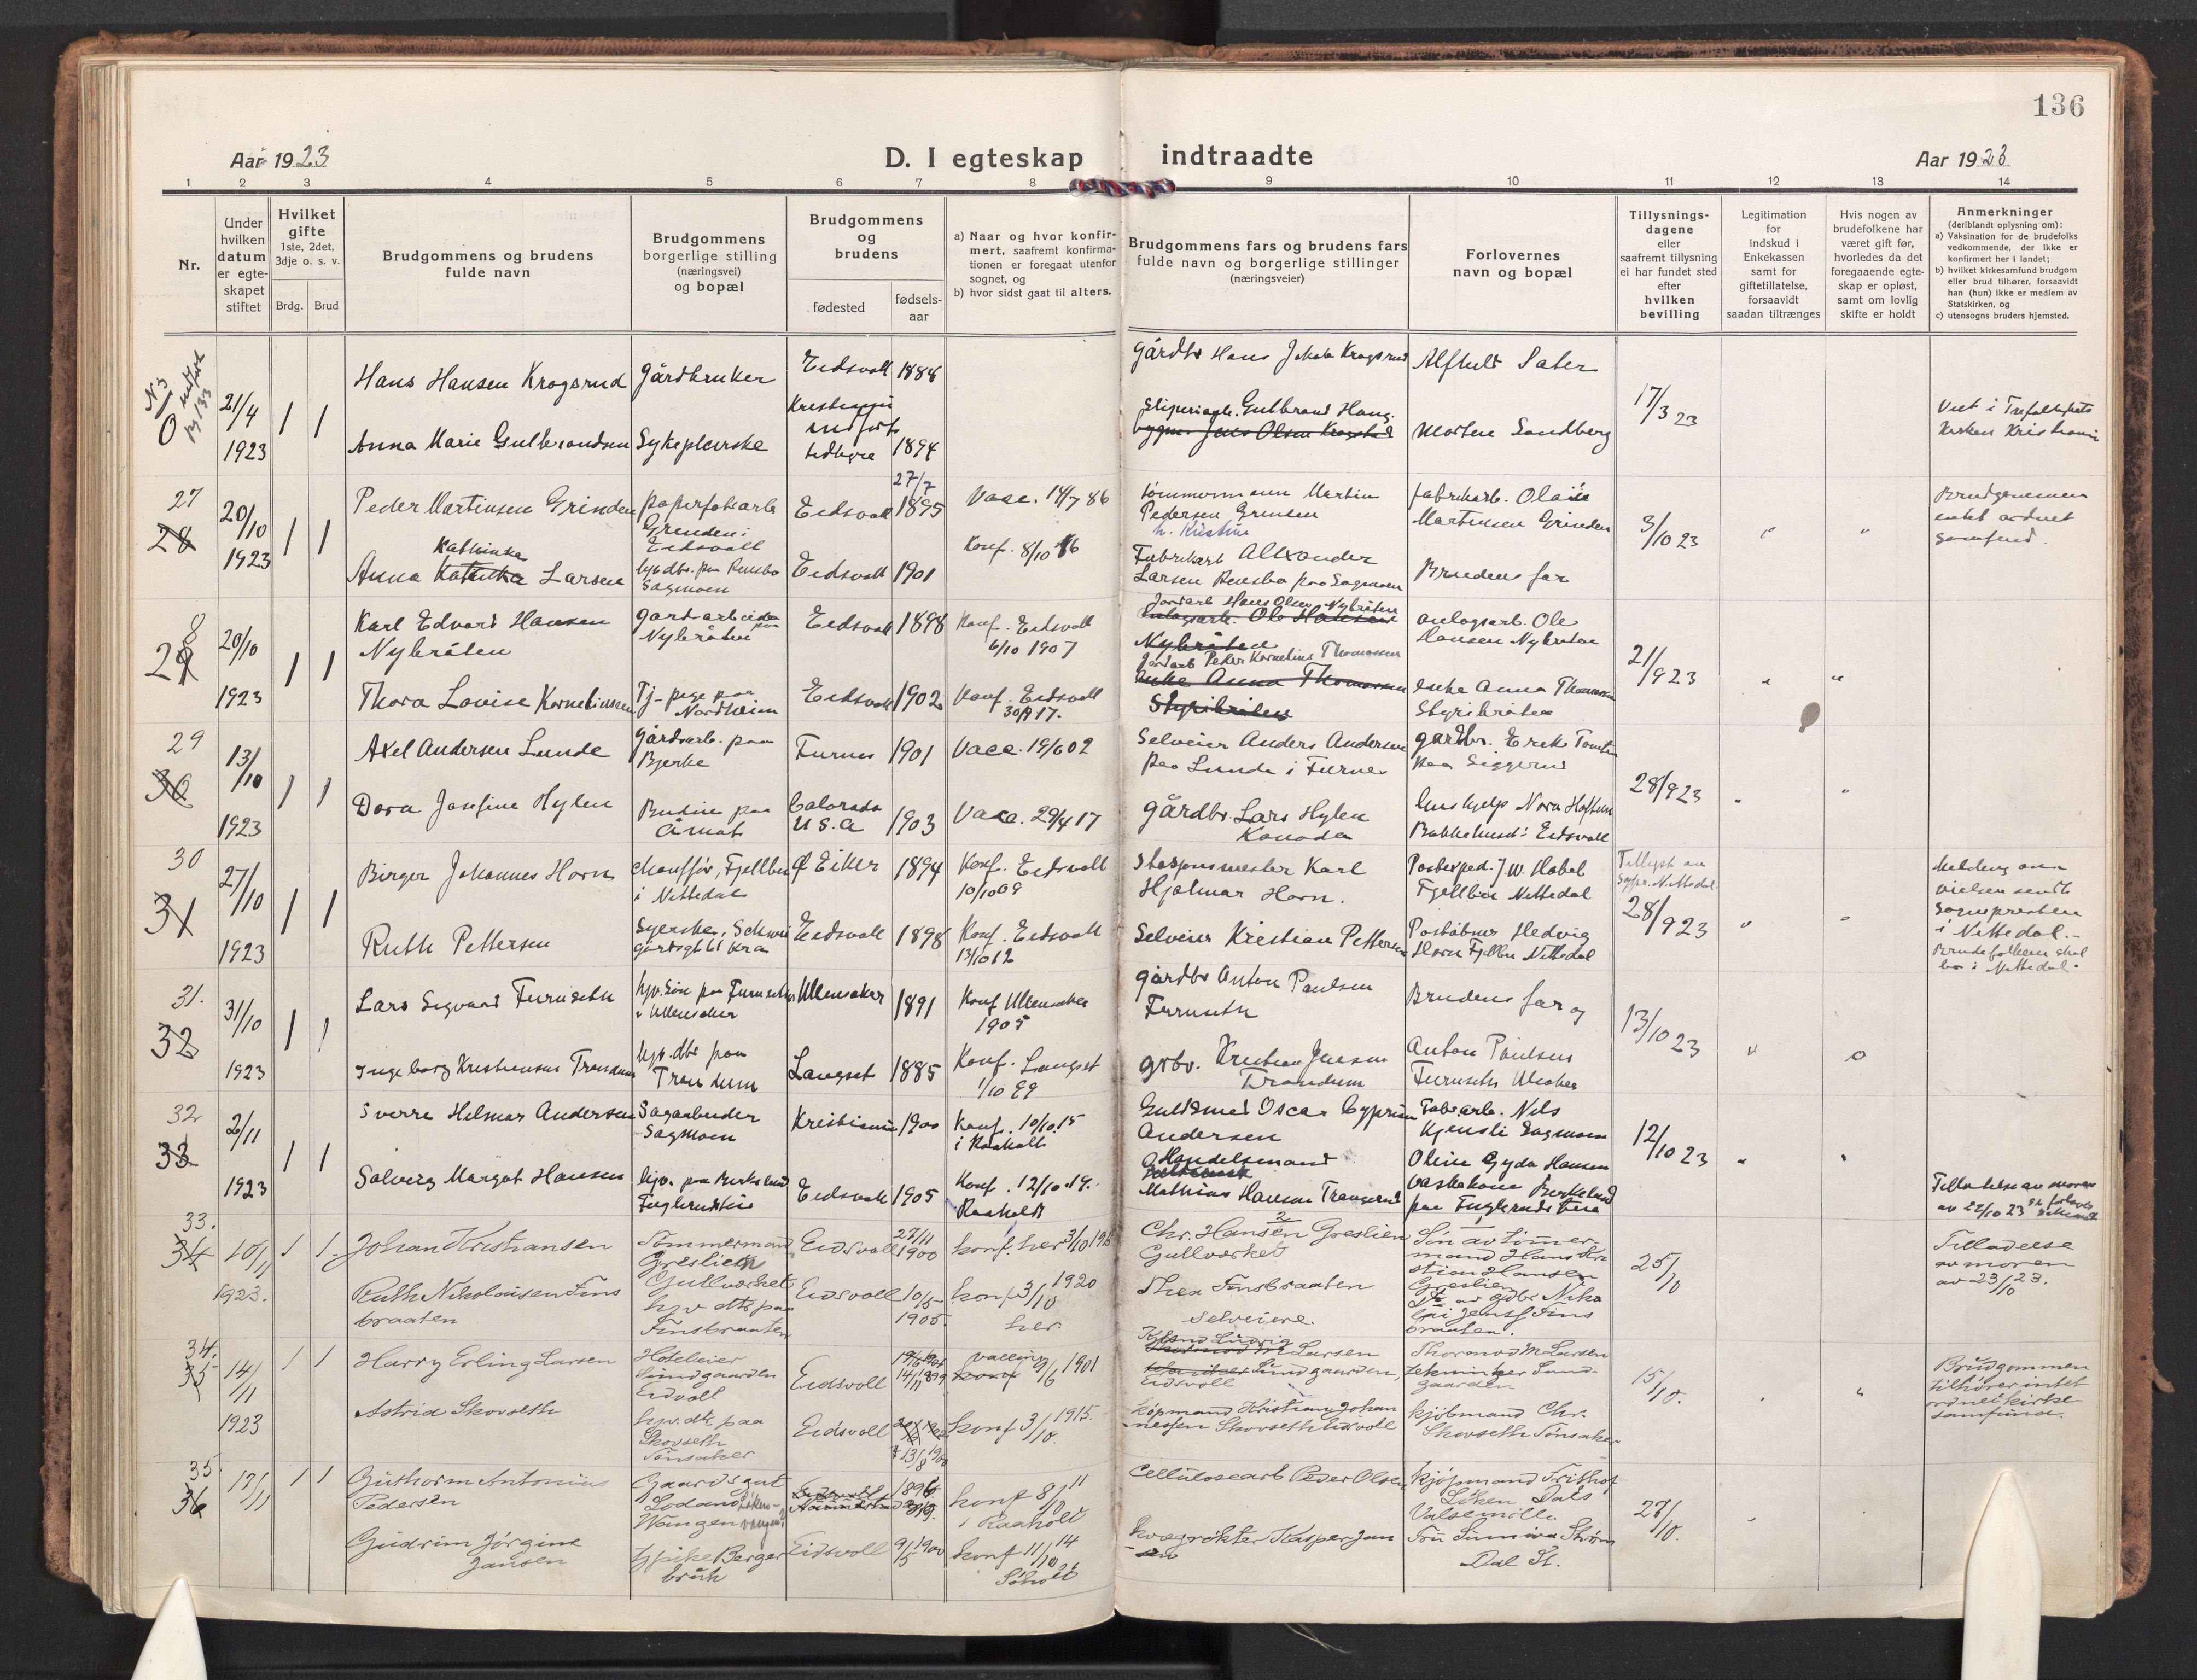 136
Aar 1923
D. I egteskap indtraadte
Aar 1923
1 2 3 4 5 6 7 8 9 10 11 12 13 14
Nr.
Under
hvilken
datum
er egte-
skapet
stiftet
Hvilket
gifte
1ste, 2det,
3dje o. s. v.
Brdg. Brud
Brudgommens og brudens
fulde navn
Brudgommens
borgerlige stilling
(næringsvei)
og bopæl
Brudgommens
og
brudens
fødested
fødsels-
aar
a) Naar og hvor konfir-
mert, saafremt konfirma-
tionen er foregaat utenfor
sognet, og
b) hvor sidst gaat til alters.
Brudgommens fars og brudens fars
fulde navn og borgerlige stillinger
(næringsveier)
Forlovernes
navn og bopæl
Tillysnings-
dagene
eller
saafremt tillysning
ei har fundet sted
efter
hvilken
bevilling
Legitimation
for
indskud i
Enkekassen
samt for
giftetillatelse,
forsaavidt
saadan tiltrænges
Hvis nogen av
brudefolkene har
været gift før,
hvorledes da det
foregaaende egte-
skap er opløst,
samt om lovlig
skifte er holdt
Anmerkninger
(deriblandt oplysning om):
a) Vaksination for de brudefolks
vedkommende, der ikke er
konfirmert her i landet;
b) hvilket kirkesamfund brudgom
eller brud tilhører, forsaavidt
han (hun) ikke er medlem av
Statskirken, og
c) utensogns bruders hjemsted.
0
21/4
1923
1 1
Hans Hansen Krogsrud
Gårdbruker
Eidsvoll 1888
Anna Marie Gulbrandsen
Sykepleierske
1894
Gårdbr Hans Jakob Krogsrud
Gulbrand Haug.
Jens Olsen Krogstad
Alfhild Sater
Morten Sandberg
17/3 23
Viet i Trefoldighets
kirken Kristiania
27
28
20/10
1923
1 1
Peder Martinsen Grinden
Grinden i
Eidsvoll
Eidsvoll
27/7
1895
Vacc. 14/7 86
Kathinka
Anna Larsen
Eidsvoll 1901
Konf. 8/10 16
Tømmermann Martin
Pedersen Grinden
h. Kristine
Fabrikarb Alexander
Larsen paa Sagmoen
fabrikarb. Olaus
Martinsen Grinden
Brudens far
3/10 23
Brudgommen
intet ordnet
samfund.
8
29
20/10
1923
1 1
Karl Edvard Hansen
Nybråten
gardarbeider
paa
Nybråten
Eidsvoll 1898
Konf. Eidsvoll
6/10 1907
Thora Lovise Korneliussen
Tj-pige paa
Nordheim
Eidsvoll 1902
Konf. Eidsvoll
30/9 17.
Jordarb Hans Olsen Nybråten
Anlagsarb. Ole Hansen
Nybråten
Jordarb Peder Kornelius Thomassen
Enke Anna Thomassen
Styribråten
anlagsarb. Ole
Hansen Nybråten
enke Anna Thomassen
Styribråten
21/9 23
29
30
13/10
1923
1 1
Axel Andersen Lunde
Gårdsarb. paa
Bjerke
Furnes 1901
Vacc. 19/6 02
Dora Josefine Hylen
Budeie paa
Åmot
Colorado
U S.A 1903
Vacc. 29/4 17
Selveier Anders Andersen
paa Lunde i Furnes
Gårdbr. Lars Hylen
Kanada
Bakkehus i Eidsvoll
28/9 23
30
31
27/10
1923
1 1
Birger Johannes Horn
Chauffør, Fjellbu
i Nittedal
Ø Eiker 1894
Konf. Eidsvoll
10/10 09
Ruth Pettersen
Eidsvoll 1898
Konf. Eidsvoll
13/10 12
Stasjonsmester Karl
Hjalmar Horn.
Selveier Kristian Pettersen
Postexped. J.W. Habel
Fjellbu Nittedal
Poståbner Hedvig
Horn Fjellbu Nittedal
28/9 23
Melding om
vielsen sendt
Sognepresten
i Nittedal.-
Brudefolkene skal
bo i Nittedal.
31.
32
31/10
1923
1 1
Lars Sigvard Furuseth
hjv. Søn paa Furuseth
i Ullensaker
Ullensaker 1891
Konf Ullensaker
1905
Ingeborg Kristiansen Trandum
hjv. dtr paa
Trandum
Langset 1885
Konf. Langset
1/10 99
gårdbr Anton Paulsen
Furuseth
grbr. Kristian Jensen
Trandum
Brudens far og
Anton Paulsen
Furuseth
13/10 23
32
33
2/11
1923
1 1
Sverre Helmar Andersen
Sagarbeider
Sagmoen
Kristiania 1900
Konf. 10/10.15
i Raaholt
Solveig Margot Hansen
Eidsvoll 1905
Konf. 12/10.19.
Raaholt
Guldsmed Oscar Cyprian
Andersen
Handelsmand
Mathias Hansen
Fabr.arb. Nils
Kjensli Sagmoen
Oline Gyda Hansen
vaskekone Berkelund
12/10 23
Tilladelse av moren
av 22/10 23
33.
34
10/11
1923.
1 1.
Johan Kristiansen
Tømmermand
Greslien
Gullverket
Eidsvoll
27/11
1900
konf. her 3/10 1915
Ruth Nikolaisen Fins
braaten
hjv dtr paa
Finsbraaten
Eidsvoll 10/5
1905.
konf 3/10 1920
her.
Chr. Hansen Greslien
Gullverket
Thea Finsbraaten
selveiere.
Søn av Tømmer-
mand Hans Kri
stian Hansen
Greslien
Dtr av gdbr Niko
lai Jensen Fins
braaten.
25/10
Tilladelse
av moren
av 23/10 23.
34.
35
14/11
1923
1 1
Harry Erling Larsen
Hoteleier
Sundgaarden
Eidvoll
Eidsvoll
14/11 1899
vaccin 9/6 1901
Astrid Skovseth
hjv. dtr paa
Skovseth
Tønsaker
Eidsvoll
13/8 1900
konf 3/10. 1915.
Larsen
Sundgaarden,
Eidsvoll
Kjøpmand Kristian Johan
nessen Skovseth Eidsvoll
Thormod M Larsen
tekniker Sund-
gaarden
kjøbmand Chr.
Skovseth Tønsaker
15/10.
Brudgommen
tilhører intet
ordnet kirke
samfund.
35.
36
17/11
1 1
Guthorm Antonius
Pedersen
Gaardsgut
Wangen
konf 8/10 11
i Raaholt
Gudrun Jørgine
Jansen
Eidsvoll 9/5 1900
konf 11/10 14
Cellulosearb Peder Olsen
Kasper Jan
sen
kjøpmand Frithof
Løken Dals
Valsemølle
Dal St.
27/10.